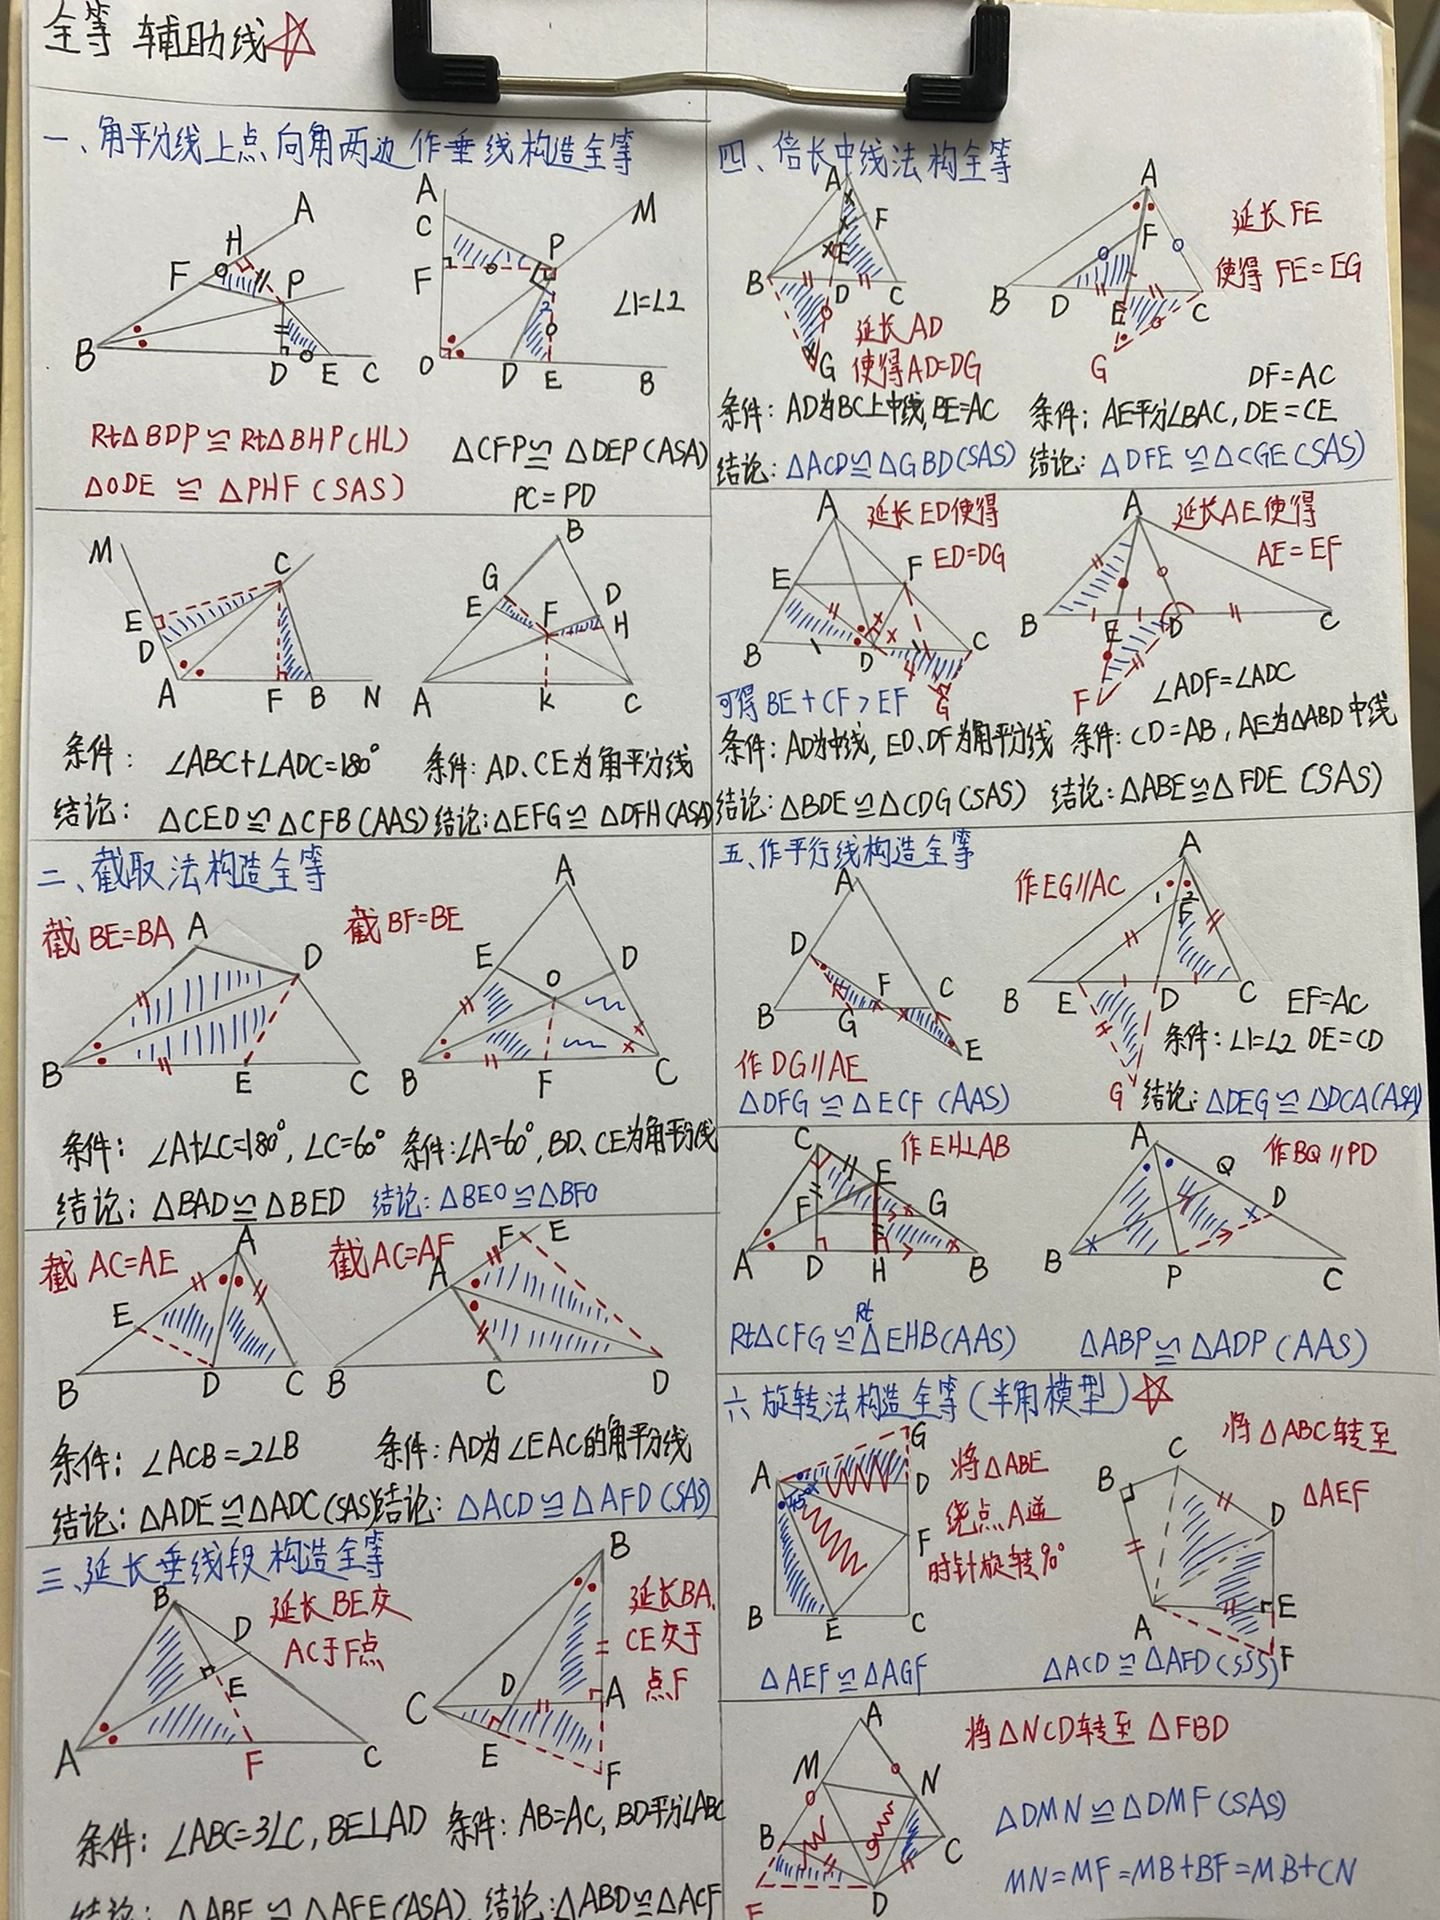 全等 辅助线☆
一、角平分线上点向角两边作垂线构造全等
A
H
F
P
B
D
E
C
A
C
M
P
F
2
∠1=∠2
O
D
E
B
Rt△BDP≌Rt△BHP(HL)
△ODE ≌ △PHF(SAS)
△CFP≌△DEP(ASA)
PC=PD
M
C
E
D
A
F
B
N
B
G
E
F
D
H
A
K
C
条件: ∠ABC+∠ADC=180°
结论: △CED≌△CFB(AAS)
条件: AD、CE为角平分线
结论:△EFG≌△DFH(ASA)
二、截取法构造全等
截BE=BA
A
D
B
E
C
截BF=BE
A
E
D
O
B
F
C
条件: ∠A+∠C=180°, ∠C=60°
结论: △BAD≌△BED
条件:∠A=60°, BD、CE为角平分线
结论:△BEO≌△BFO
截AC=AE
A
E
B
D
C
截AC=AF
F
E
A
B
C
D
条件: ∠ACB=2∠B
结论: △ADE≌△ADC(SAS)
条件: AD为∠EAC的角平分线
结论: △ACD≌△AFD(SAS)
三、延长垂线段构造全等
延长BE交
AC于F点
B
D
E
A
F
C
延长BA,
CE交于
点F
B
C
D
A
E
F
条件: ∠ABC=3∠C, BE⊥AD
结论: △ABE≌△AFE(ASA)
条件: AB=AC, BD平分∠ABC
结论:△ABD≌△ACF
四、倍长中线法构全等
A
F
E
B
D
C
G
延长AD
使得AD=DG
条件: AD为BC上中线, BE=AC
结论: △ACD≌△GBD(SAS)
A
F
B
D
E
C
G
延长FE
使得 FE=EG
DF=AC
条件: AE平分∠BAC, DE=CE
结论: △DFE≌△CGE(SAS)
A
延长ED使得
ED=DG
E
F
B
D
C
G
可得BE+CF>EF
条件: AD为中线, ED、DF为角平分线
结论:△BDE≌△CDG(SAS)
A
延长AE使得
AE=EF
B
E
D
C
F
∠ADF=∠ADC
条件: CD=AB, AE为△ABD中线
结论:△ABE≌△FDE(SAS)
五、作平行线构造全等
A
D
F
C
B
G
E
作DG∥AE
△DFG≌△ECF(AAS)
作EG∥AC
A
1
2
F
B
E
D
C
G
EF=AC
条件: ∠1=∠2 DE=CD
结论:△DEG≌△DCA(ASA)
C
E
作EH⊥AB
F
G
A
D
H
B
Rt△CFG≌Rt△EHB(AAS)
A
Q
D
作BQ∥PD
B
P
C
△ABP≌△ADP(AAS)
六旋转法构造全等(半角模型)☆
G
A
D
45°
F
B
E
C
将△ABE
绕点A逆
时针旋转90°
△AEF≌△AGF
将△ABC转至
△AEF
C
B
D
A
E
F
△ACD≌△AFD(SSS)
A
M
N
B
C
F
D
将△NCD转至△FBD
△DMN≌△DMF(SAS)
MN=MF=MB+BF=MB+CN